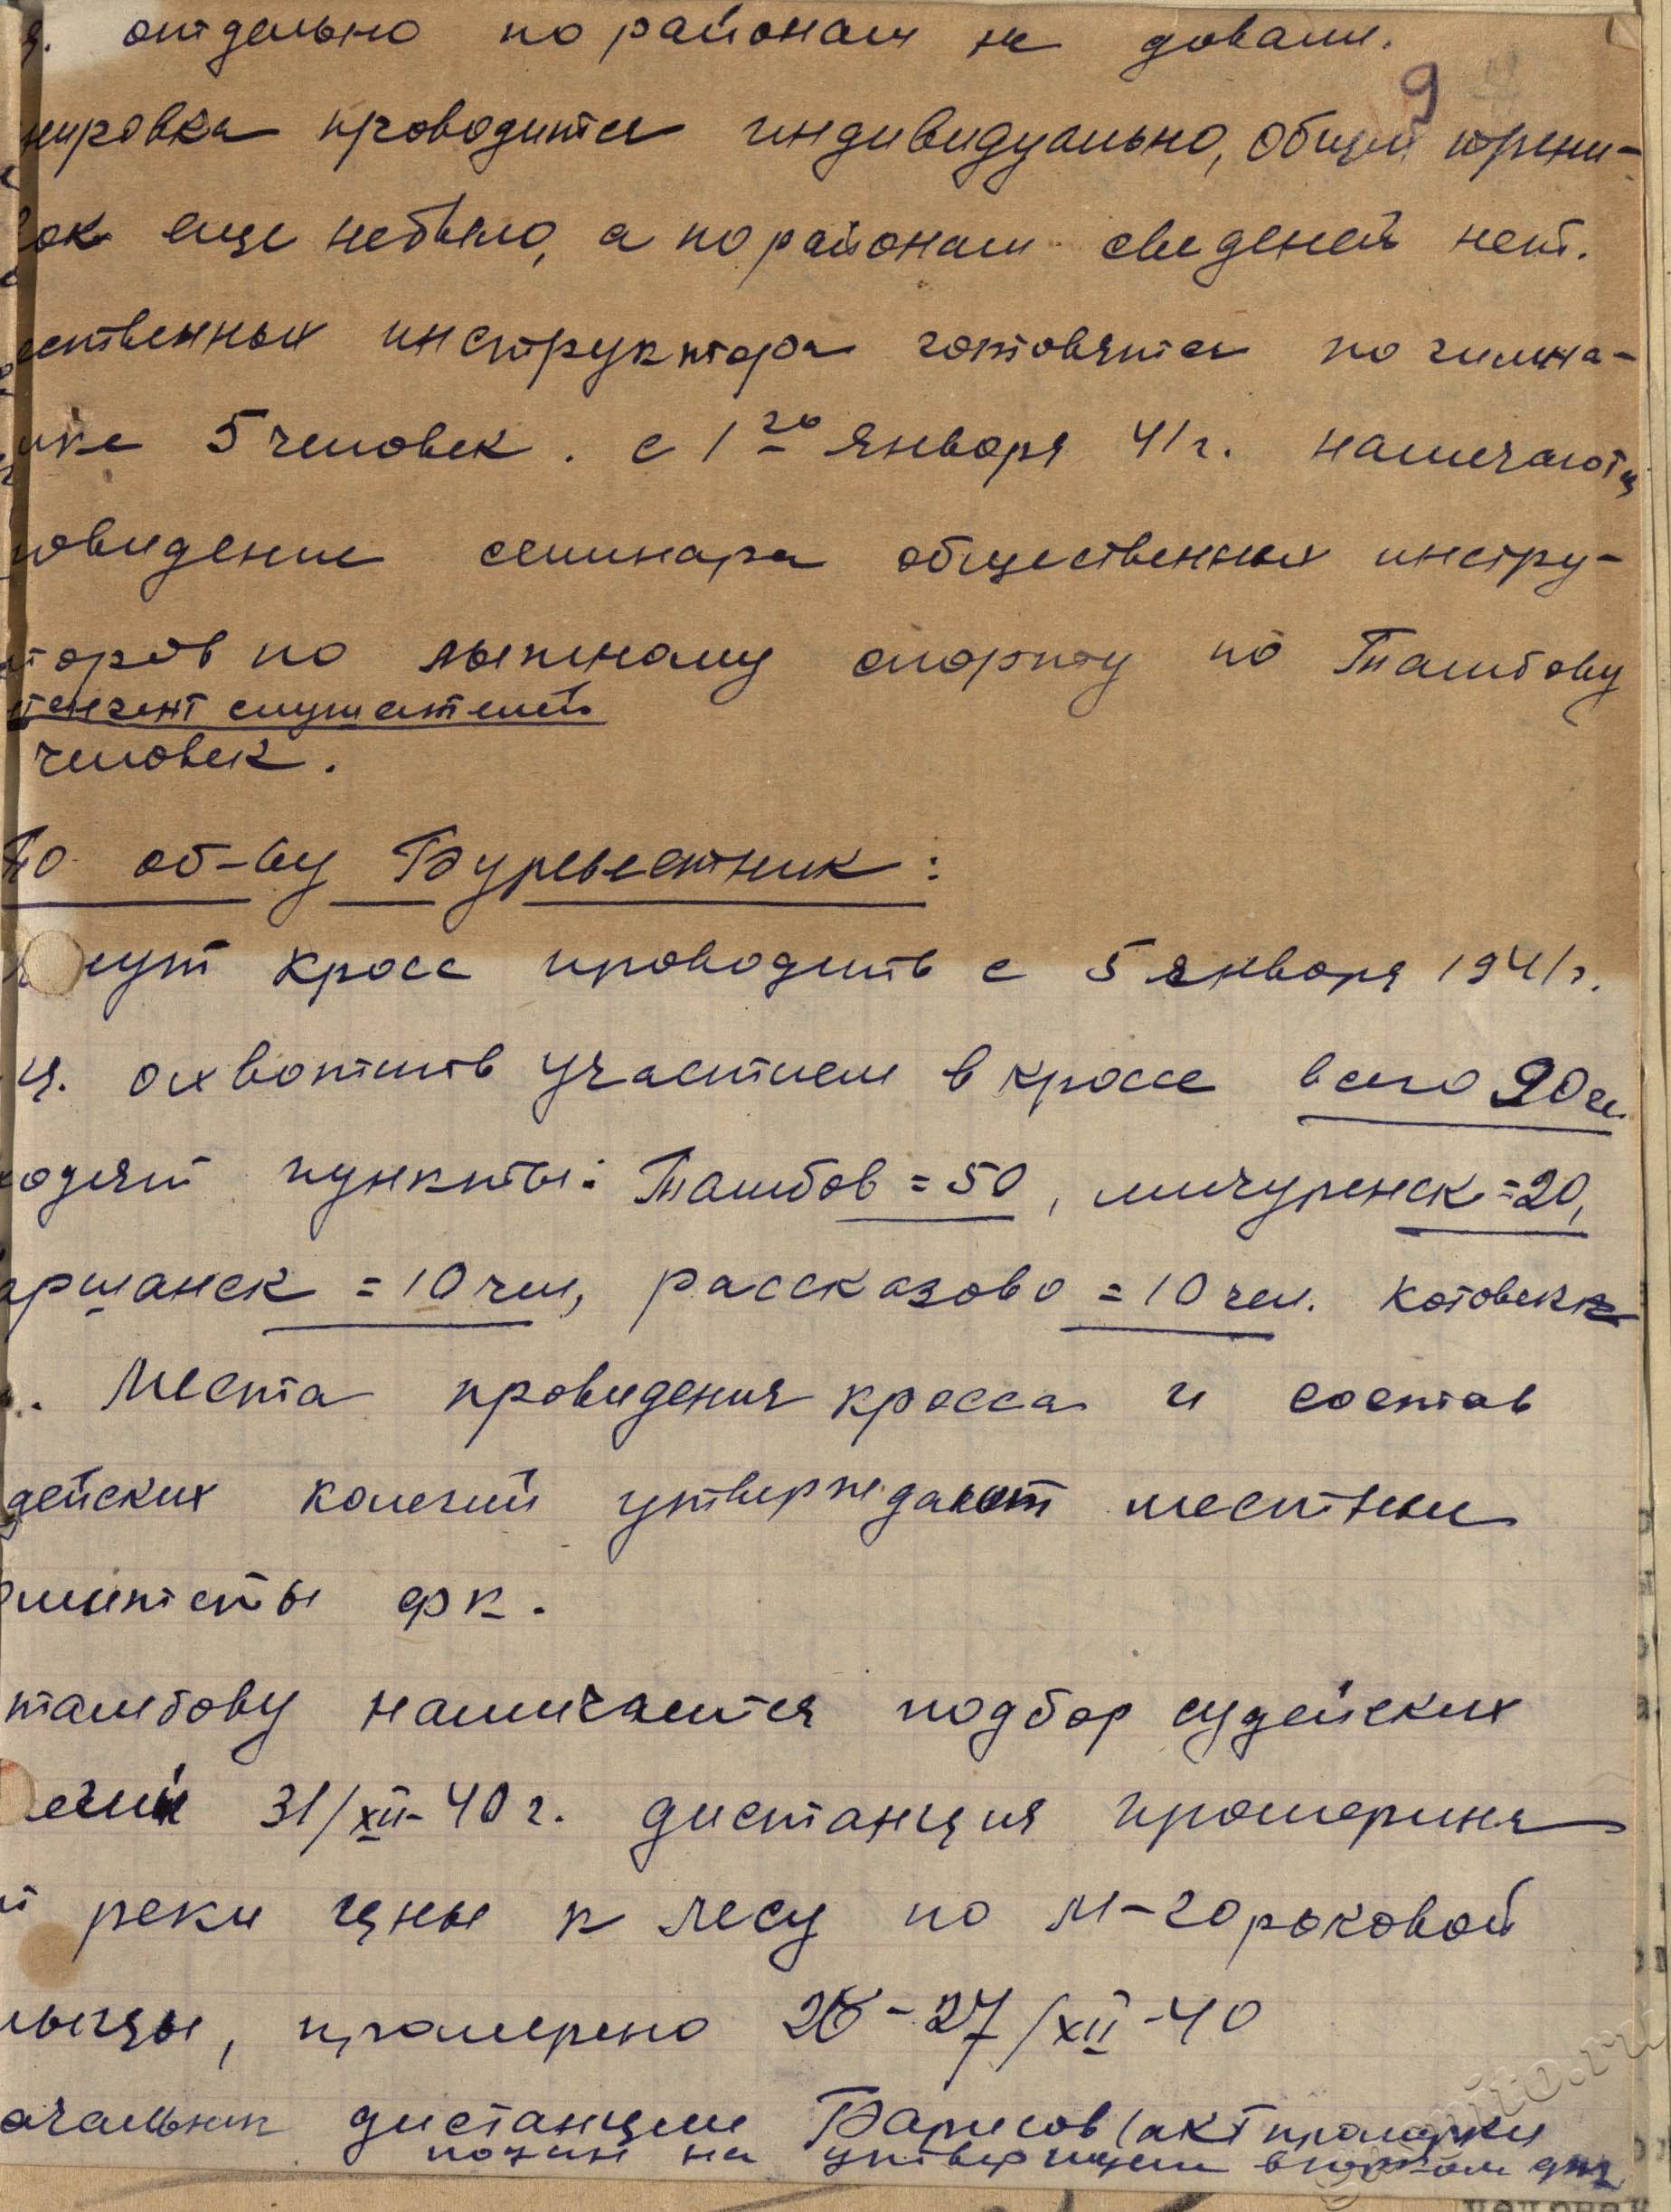 отдельно по районам не давали.
9
нировка проводится индивидуально, общей трени-
вок еще небыло, а по районам сведений нет.
ественных инструктора готовятся по гимна-
тике 5 человек. с 1го января 41г. намечаются
поведение семинара общественных инстру-
торов по лыжному спорту по Тамбову
тенгент слушателей
человек.
По об-ву Буревестник:
нут кросс проводить с 5 января 1941г.
ц. охвотить участием в кроссе всего 90 че
ходят пункты: Тамбов = 50, мичуренск = 20,
аршанск = 10 чел, рассказово = 10 чел. Котовск
. Места проведения кросса и состав
дейских колегий утверждают местные
омитеты фк.
тамбову намичается подбор судейских
легий 31/XII-40г. дистанция промериня
т реки цны к лесу по м-горроковой
льицы, промерено 26-27/XII-40
ачальник дистанции Борисов (акт промерки
на утверждение в